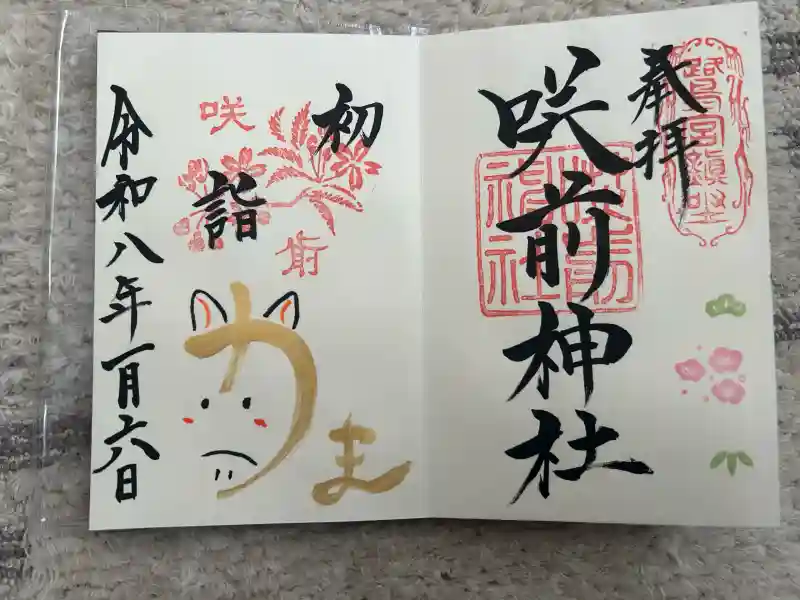 奉拝
鷺宮鎮坐
咲前神社
初
詣
咲
前
うま
令和八年一月六日